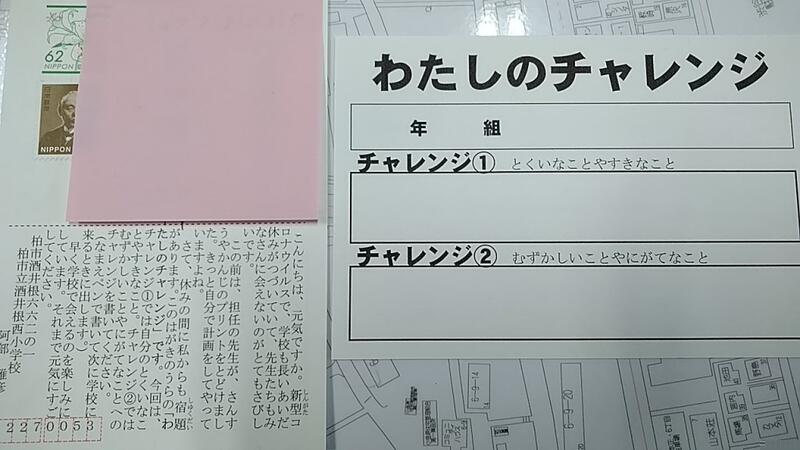 62
NIPPON
日本郵便
NIPPON
こんにちは、元気ですか。新型コ
ロナウイルスで、学校も長いあいだ
休みがつづいていて、先生たちもみ
なさんに会えないのがとてもさびし
いです。
この前は、担任の先生が、さんす
うやかんじのプリントをとどけまし
た。きっと自分で計画をしてやって
いますよね。
さて、休みの間に私からも宿題
があります。このはがきのうらの「わ
たしのチャレンジ」です。今回は、
チャレンジ①では自分のとくいなこ
とやすきなこと。チャレンジ②では
むずかしいことやにがてなことへの
チャレンジを書いてください。
(なまえペンで書いて次に学校に
来るときに出します)
早く学校で会えるのを楽しみに
しています。それまで元気にすご
してください。
柏市酒井根六六二の一
柏市立酒井根西小学校
阿部 雅彦
2270053
わたしのチャレンジ
年 組
チャレンジ① とくいなことやすきなこと
チャレンジ② むずかしいことやにがてなこと
6-9-14
6-9-20
コミュニティ
ハウス
山本荘